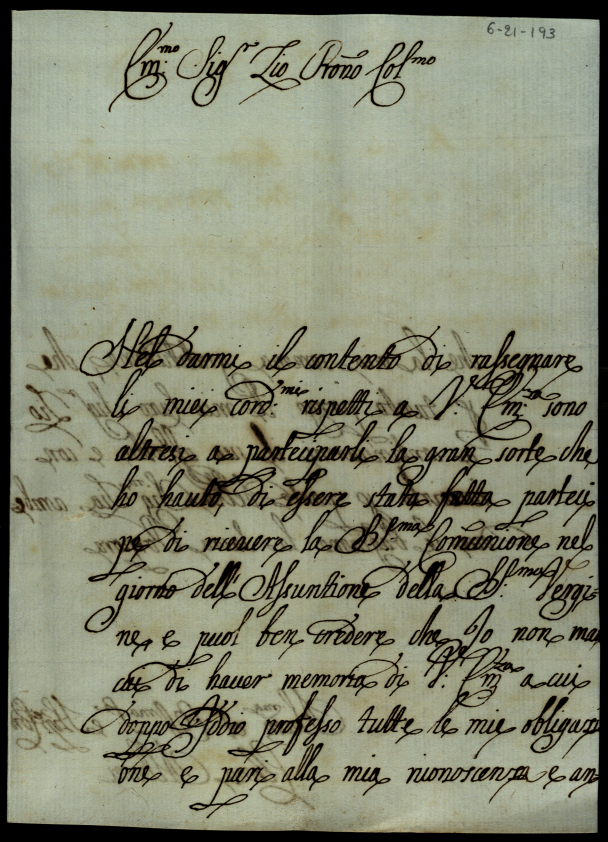 6-21-193
Em:mo Sig:r Zio Pron̄o Col:mo
Nel darmi il contento di rassegnare
li miei cord:mi rispetti a V. Em:za sono
altresi a parteciparli la gran sorte che
ho hauto, di essere stata fatta parteci
pe di riceuere la S.S:ma Comunione nel
giorno dell'Assuntione della S.S:ma Vergi
ne, e puol ben credere che Io non man
cai di hauer memoria di V. Em:za a cui
doppo Iddio professo tutte le mie obligazi
one e pari alla mia riconoscenza e an